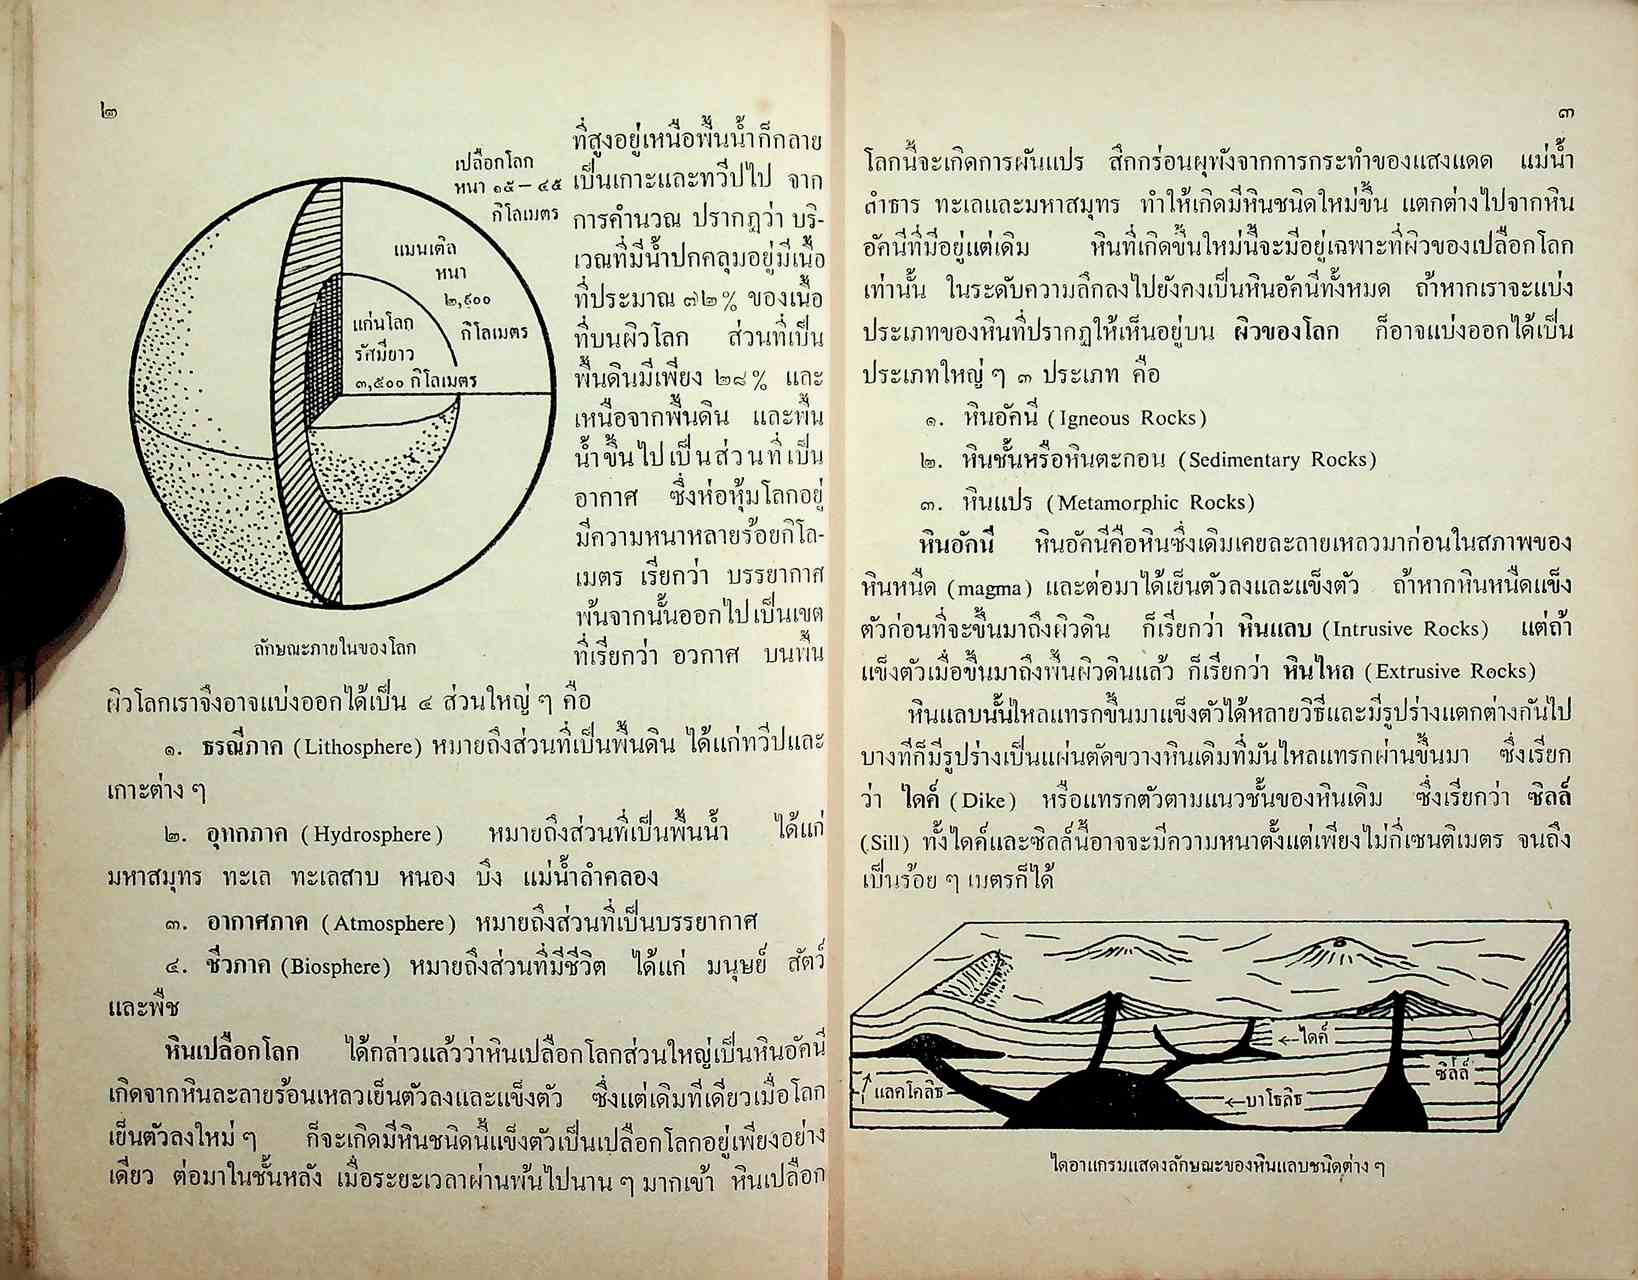 ๒
เปลือกโลก
หนา ๑๕ – ๔๕
กิโลเมตร
แมนเติล
หนา
๒,๙๐๐
กิโลเมตร
แก่นโลก
รัศมียาว
๓,๕๐๐ กิโลเมตร
ลักษณะภายในของโลก
ที่สูงอยู่เหนือพื้นน้ำก็กลาย
เป็นเกาะและทวีปไป จาก
การคำนวณ ปรากฏว่า บริ-
เวณที่มีน้ำปกคลุมอยู่มีเนื้อ
ที่ประมาณ ๗๒% ของเนื้อ
ที่บนผิวโลก ส่วนที่เป็น
พื้นดินมีเพียง ๒๘% และ
เหนือจากพื้นดิน และพื้น
น้ำขึ้นไปเป็นส่วนที่เป็น
อากาศ ซึ่งห่อหุ้มโลกอยู่
มีความหนาหลายร้อยกิโล-
เมตร เรียกว่า บรรยากาศ
พ้นจากนั้นออกไปเป็นเขต
ที่เรียกว่า อวกาศ บนพื้น
ผิวโลกเราจึงอาจแบ่งออกได้เป็น ๔ ส่วนใหญ่ ๆ คือ
๑. ธรณีภาค (Lithosphere) หมายถึงส่วนที่เป็นพื้นดิน ได้แก่ทวีปและ
เกาะต่าง ๆ
๒. อุทกภาค (Hydrosphere) หมายถึงส่วนที่เป็นพื้นน้ำ ได้แก่
มหาสมุทร ทะเล ทะเลสาบ หนอง บึง แม่น้ำลำคลอง
๓. อากาศภาค (Atmosphere) หมายถึงส่วนที่เป็นบรรยากาศ
๔. ชีวภาค (Biosphere) หมายถึงส่วนที่มีชีวิต ได้แก่ มนุษย์ สัตว์
และพืช
หินเปลือกโลก ได้กล่าวแล้วว่าหินเปลือกโลกส่วนใหญ่เป็นหินอัคนี
เกิดจากหินละลายร้อนเหลวเย็นตัวลงและแข็งตัว ซึ่งแต่เดิมทีเดียวเมื่อโลก
เย็นตัวลงใหม่ ๆ ก็จะเกิดมีหินชนิดนี้แข็งตัวเป็นเปลือกโลกอยู่เพียงอย่าง
เดียว ต่อมาในชั้นหลัง เมื่อระยะเวลาผ่านพ้นไปนาน ๆ มากเข้า หินเปลือก
๓
โลกนี้จะเกิดการผันแปร สึกกร่อนผุพังจากการกระทำของแสงแดด แม่น้ำ
ลำธาร ทะเลและมหาสมุทร ทำให้เกิดมีหินชนิดใหม่ขึ้น แตกต่างไปจากหิน
อัคนีที่มีอยู่แต่เดิม หินที่เกิดขึ้นใหม่นี้จะมีอยู่เฉพาะที่ผิวของเปลือกโลก
เท่านั้น ในระดับความลึกลงไปยังคงเป็นหินอัคนีทั้งหมด ถ้าหากเราจะแบ่ง
ประเภทของหินที่ปรากฏให้เห็นอยู่บน ผิวของโลก ก็อาจแบ่งออกได้เป็น
ประเภทใหญ่ ๆ ๓ ประเภท คือ
๑. หินอัคนี (Igneous Rocks)
๒. หินชั้นหรือหินตะกอน (Sedimentary Rocks)
๓. หินแปร (Metamorphic Rocks)
หินอัคนี หินอัคนีคือหินซึ่งเดิมเคยละลายเหลวมาก่อนในสภาพของ
หินหนืด (magma) และต่อมาได้เย็นตัวลงและแข็งตัว ถ้าหากหินหนืดแข็ง
ตัวก่อนที่จะขึ้นมาถึงผิวดิน ก็เรียกว่า หินแลบ (Intrusive Rocks) แต่ถ้า
แข็งตัวเมื่อขึ้นมาถึงพื้นผิวดินแล้ว ก็เรียกว่า หินไหล (Extrusive Rocks)
หินแลบนั้นไหลแทรกขึ้นมาแข็งตัวได้หลายวิธีและมีรูปร่างแตกต่างกันไป
บางทีก็มีรูปร่างเป็นแผ่นตัดขวางหินเดิมที่มันไหลแทรกผ่านขึ้นมา ซึ่งเรียก
ว่า ไดค์ (Dike) หรือแทรกตัวตามแนวชั้นของหินเดิม ซึ่งเรียกว่า ซิลล์
(Sill) ทั้งไดค์และซิลล์นี้อาจจะมีความหนาตั้งแต่เพียงไม่กี่เซนติเมตร จนถึง
เป็นร้อย ๆ เมตรก็ได้
ไดค์
ซิลล์
แลคโคลิธ
บาโธลิธ
ไดอาแกรมแสดงลักษณะของหินแลบชนิดต่าง ๆ